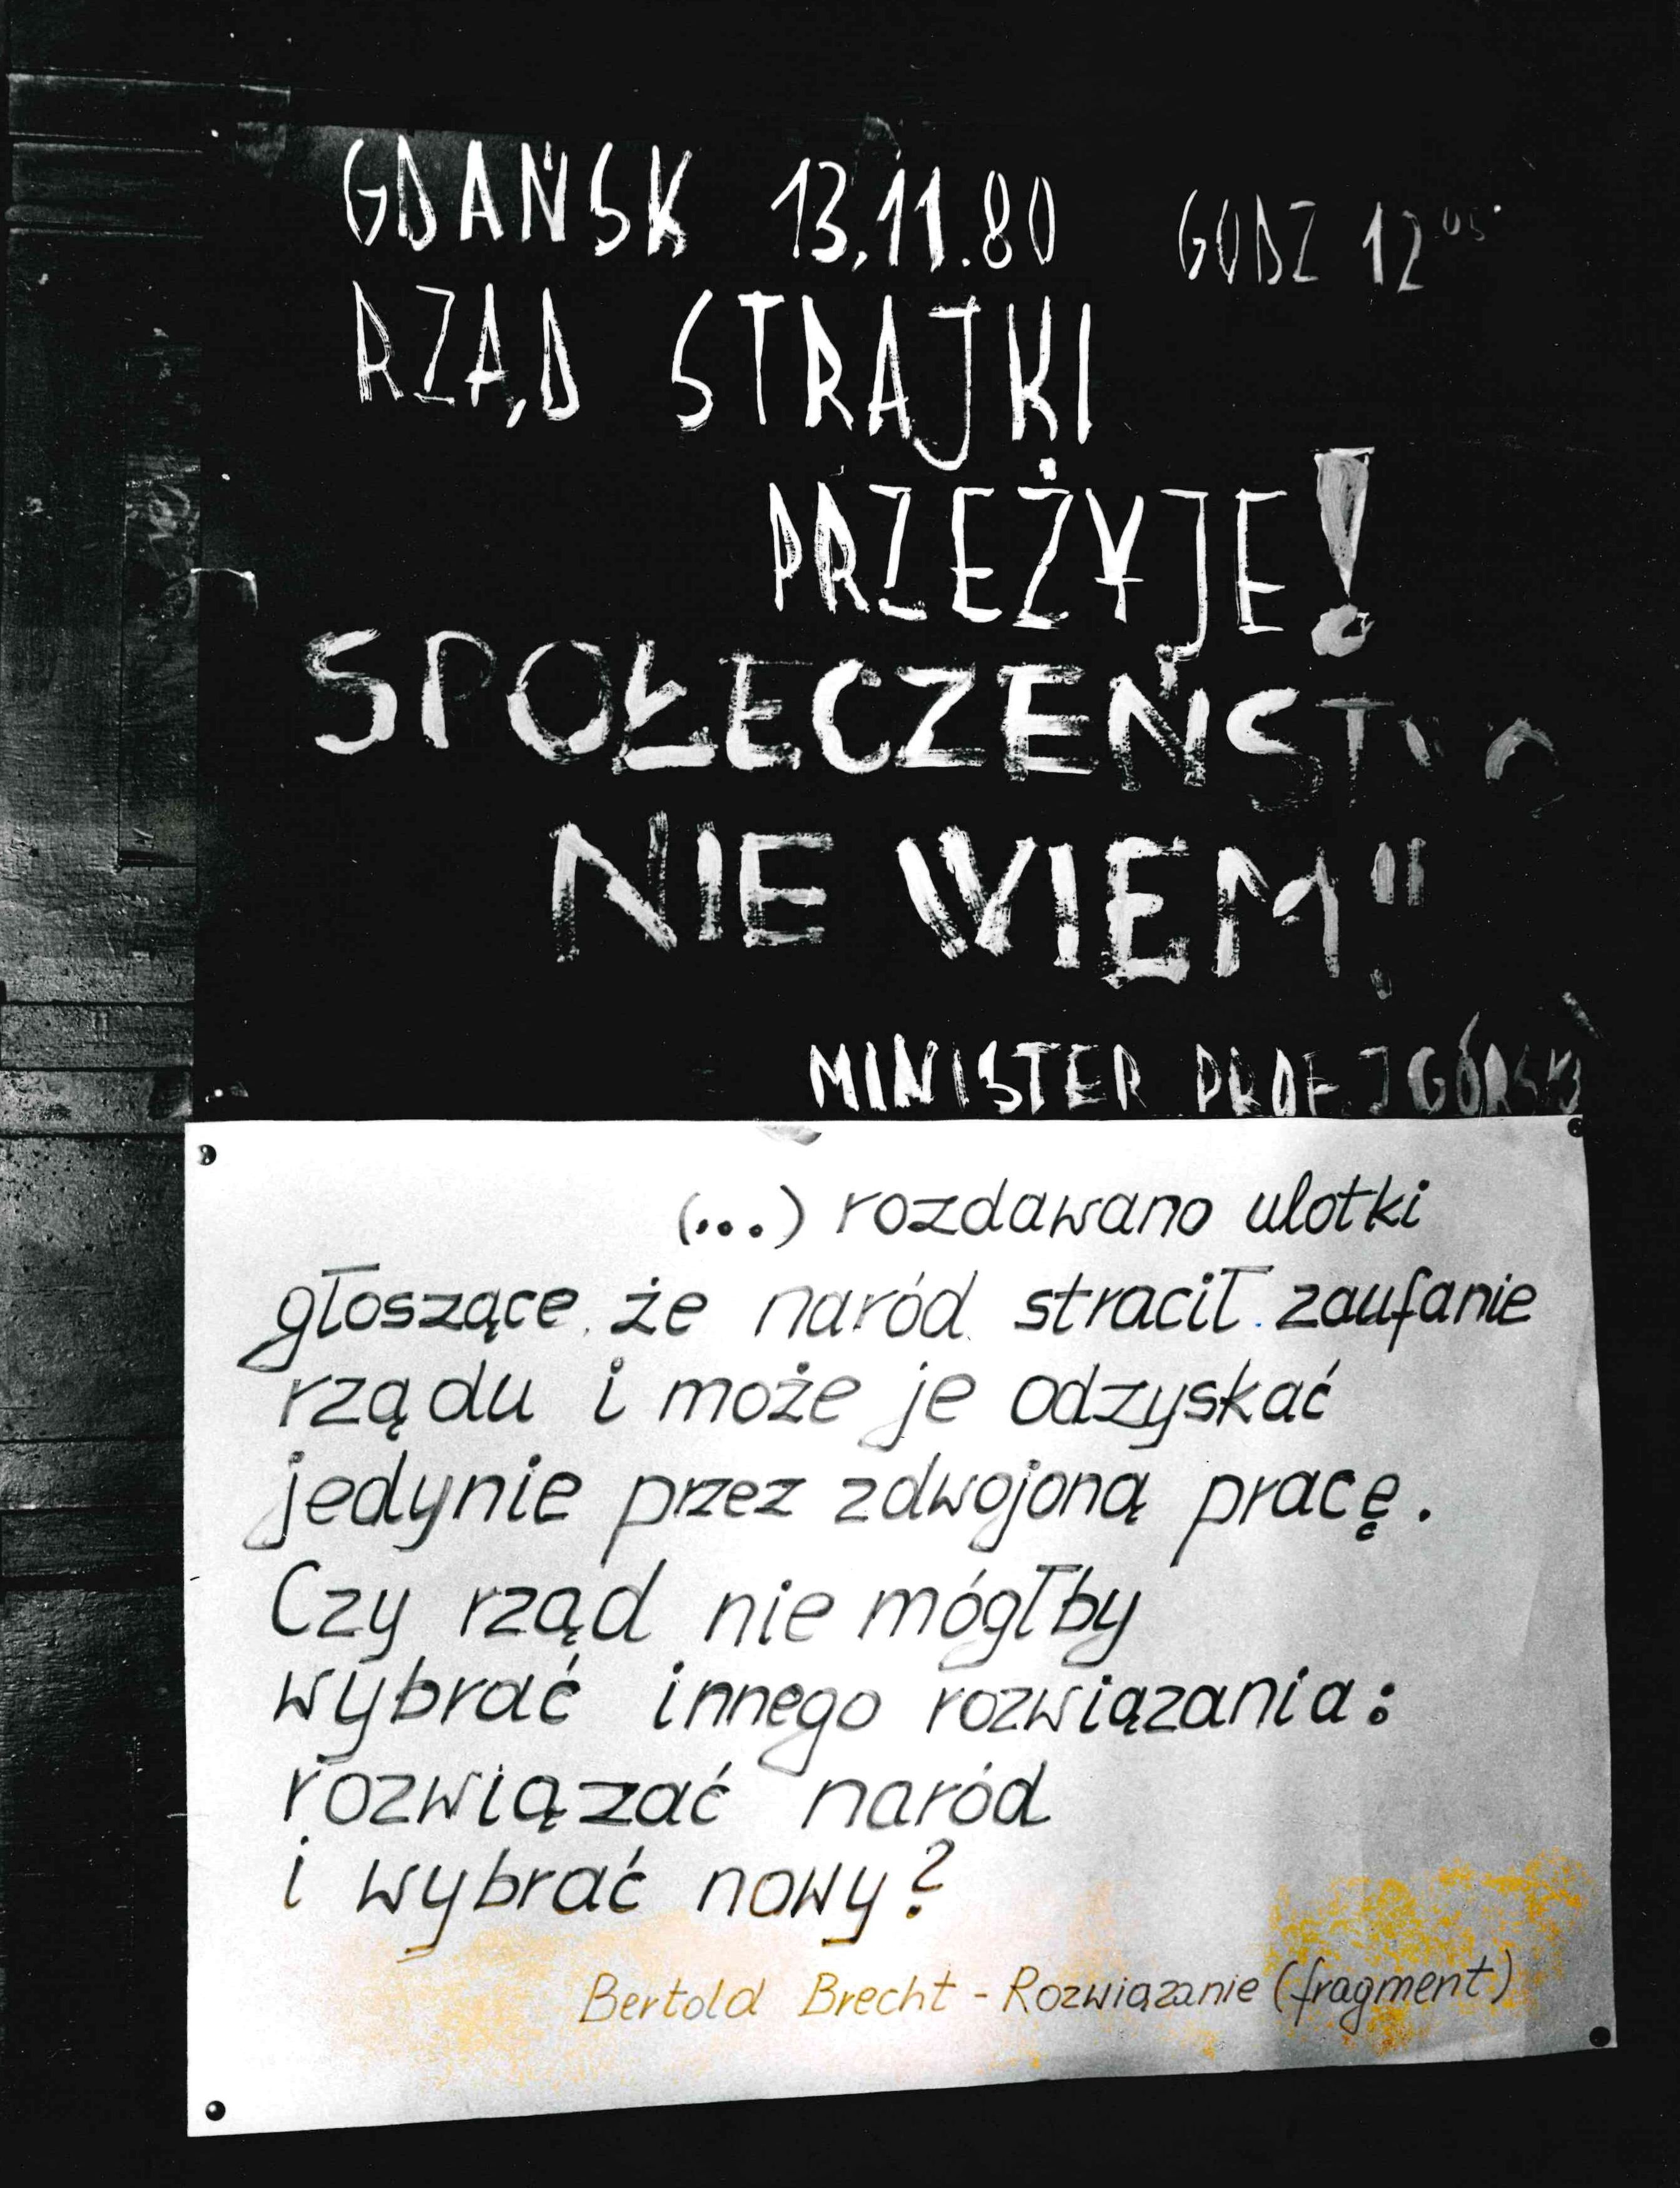 GDAŃSK 13.11.80 GODZ 12⁰⁵
RZĄD STRAJKI
PRZEŻYJE!
SPOŁECZEŃSTWO
NIE WIEM"
MINISTER PROF. J GÓRSKI
(...) rozdawano ulotki
głoszące, że naród stracił zaufanie
rządu i może je odzyskać
jedynie przez zdwojoną pracę.
Czy rząd nie mógłby
wybrać innego rozwiązania:
rozwiązać naród
i wybrać nowy?
Bertold Brecht - Rozwiązanie (fragment)